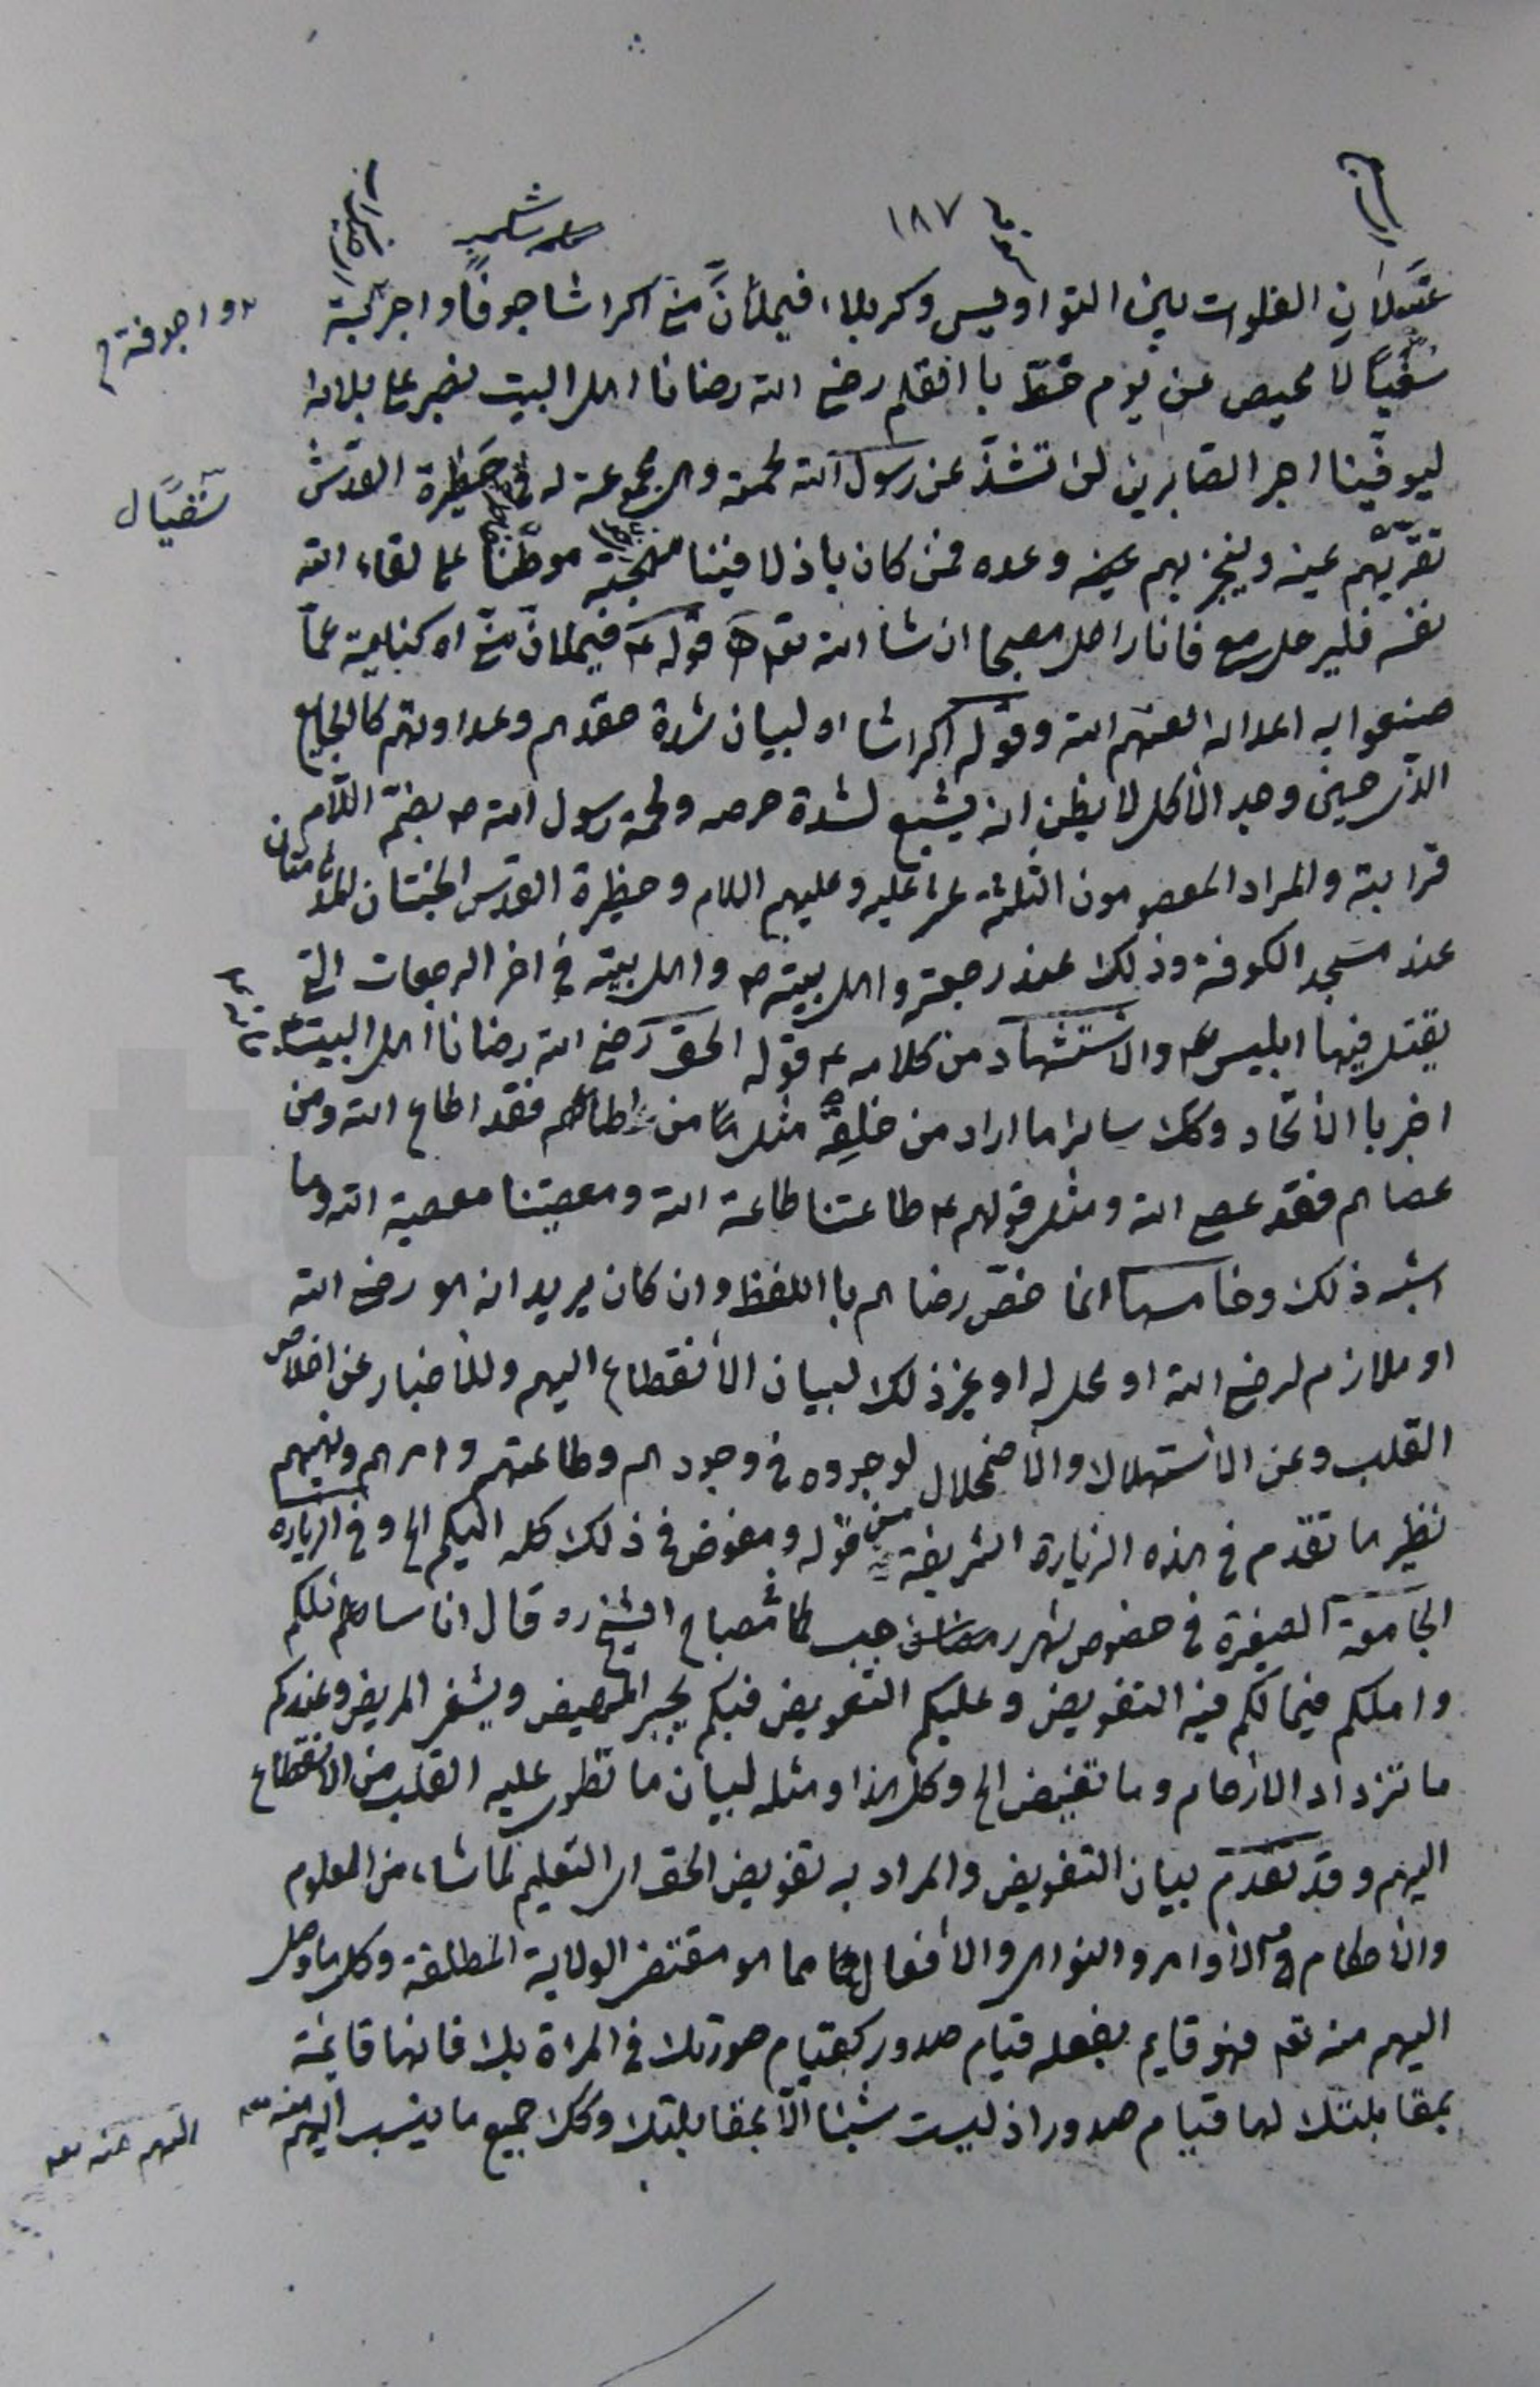 ١٨٧
عسلان الفلوات بين النواويس وكربلاء فيملأنّ منّي اكراشا جوفًا واجربة
واجوفة
سُغْبًا لا محيص عن يوم خُطّ بالقلم رضى الله رضانا اهل البيت نصبر على بلائه
ليوفّينا اجر الصّابرين لن تشذّ عن رسول الله لحمته وهى مجموعة له فى حظيرة القدس
سُغبًا ل
تقرّ بهم عينه وينجز بهم وعده فمن كان باذلا فينا مهجته موطّنا على لقاء الله
نفسه فليرحل معى فانا راحل مصبحا ان شاء الله تعه قوله ع فيملأنّ منّى اه كناية عمّا
صنعوا به اعداؤه لعنهم الله وقوله اكراشا اه لبيان شدة حقدهم وعداوتهم كالجايع
الذى حين وجد الأكل لا يظن انه يشبع لشدة حرصه ولحمة رسول الله ص بضمّ اللّام
قرابته والمراد المعصومون الثلثة عشر عليه وعليهم السلام وحظيرة القدس الجنتان المدهامتان
عند مسجد الكوفة وذلك عند رجعته واهل بيته ص واهل بيته فى اخر الرجعات التى
يقتل فيها ابليس والاستشهاد من كلامه ع قوله الحق رضى الله رضانا اهل البيت
اخبر بالأتّحاد وكك ساير ما اراد من خلقه مثل من اطاعهم فقد اطاع الله ومن
عصاهم فقد عصى الله ومثل قولهم ع طاعتنا طاعة الله ومعصيتنا معصية الله وما
اشبه ذلك وخامسها انما خصّ رضاهم باللفظ وان كان يريد انه هو رضى الله
او ملازم لرضى الله او محل له او غير ذلك لبيان الأنقطاع اليهم وللأخبار عن اخلاص
القلب وعن الأستهلاك والأضمحلال لوجوده فى وجودهم وطاعتهم وامرهم ونهيهم
نظير ما تقدم فى هذه الزيارة الشريفة من قوله ومفوض فى ذلك كله اليكم الخ وفى الزيارة
الجامعة الصغيرة فى خصوص شهر رجب كما فى مصباح الشيخ ره قال انا سائلكم
واملكم فيما لكم فيه التفويض وعليكم التعويض فبكم يجبر المهيض ويشفى المريض وعندكم
ما تزداد الارحام وما تغيض الخ وكل هذا ومثله لبيان ما تطوى عليه القلب من الانقطاع
اليهم وقد تقدم بيان التفويض والمراد به تفويض الحق اى التعليم لما شاء من العلوم
والأحكام والأوامر والنواهى والأفعال مما هو مقتضى الولاية المطلقة وكل ما وصل
اليهم منه تعه فهو قايم بفعله قيام صدور كقيام صورتك فى المراة بك فانها قائمة
بمقابلتك لها قيام صدور اذ ليست شيئا الّا بمقابلتك وكك جميع ما ينسب اليهم منه
اليهم منه تعه